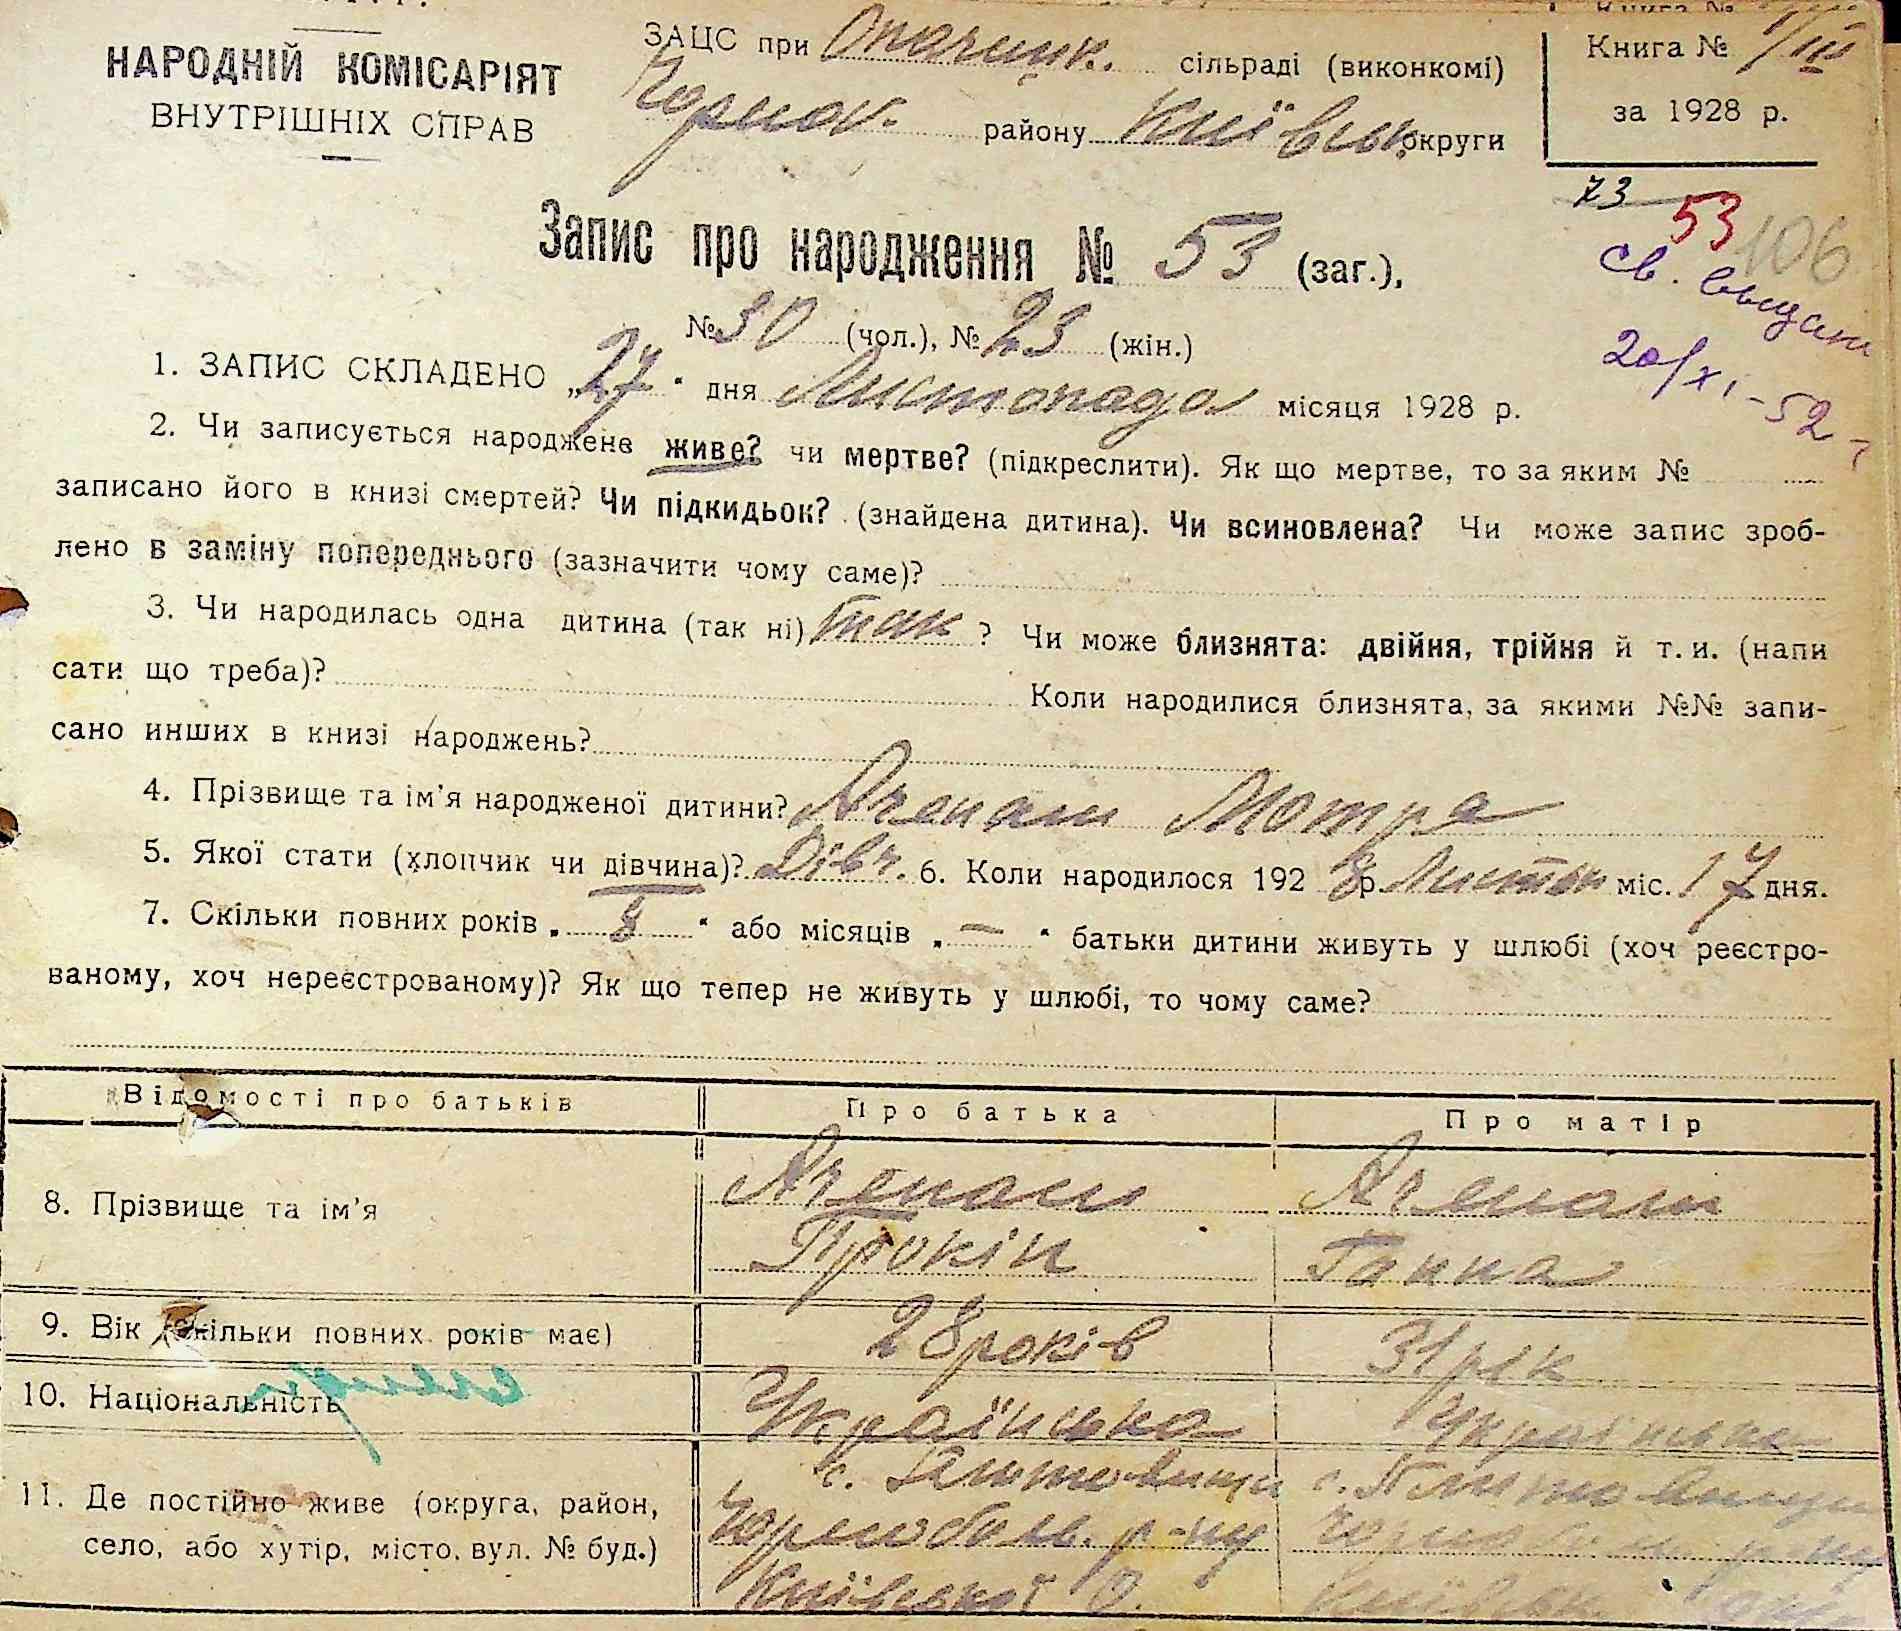 НАРОДНІЙ КОМІСАРІЯТ
ВНУТРІШНІХ СПРАВ
ЗАЦС при Опачицк. сільраді (виконкомі)
Чорноб. району Київськ. округи
Книга № 1/III
за 1928 р.
73
53
106
св. выдан
20/XI-52
Запис про народження № 53 (заг.),
№ 30 (чол.), № 23 (жін.)
1. ЗАПИС СКЛАДЕНО „27" дня Листопада місяця 1928 р.
2. Чи записується народжене живе? чи мертве? (підкреслити). Як що мертве, то за яким №
записано його в книзі смертей? Чи підкидьок? (знайдена дитина). Чи всиновлена? Чи може запис зроб-
лено в заміну попереднього (зазначити чому саме)?
3. Чи народилась одна дитина (так ні) так ? Чи може близнята: двійня, трійня й т. и. (напи
сати що треба)? Коли народилися близнята, за якими №№ запи-
сано инших в книзі народжень?
4. Прізвище та ім'я народженої дитини? Мотря
5. Якої стати (хлопчик чи дівчина)? Дівч. 6. Коли народилося 1928 р. Листоп міс. 17 дня.
7. Скільки повних років „ 8 " або місяців „ — " батьки дитини живуть у шлюбі (хоч реєстро-
ваному, хоч нереєстрованому)? Як що тепер не живуть у шлюбі, то чому саме?
Відомості про батьків Про батька Про матір
8. Прізвище та ім'я
Прокіп Ганна
9. Вік (скільки повних років має) 28 років 31 рік
10. Національність Українська Українська
11. Де постійно живе (округа, район,
село, або хутір, місто, вул. № буд.)
с. Плютовищи
Чорнобильс. р-ну
Київської О.
с. Плютовищи
Чорнобильс. р-ну
Київськ. окр.